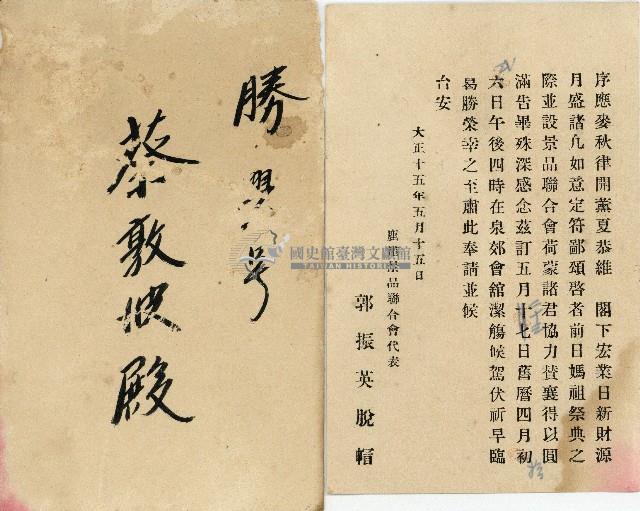 序應麥秋律開薰夏恭維　閣下宏業日新財源
月盛諸凡如意定符鄙頌啓者前日媽祖祭典之
際並設景品聯合會荷蒙諸君協力贊襄得以圓
滿告畢殊深感念茲訂五月十七日舊曆四月初
六日午後四時在泉郊會舘潔觴候駕伏祈早臨
曷勝榮幸之至肅此奉請並候
台安
大正十五年五月十五日
鹿港景品聯合會代表
郭振英脫帽
勝 號
蔡敦波殿
國史館臺灣文獻館
TAIWAN HISTORICA